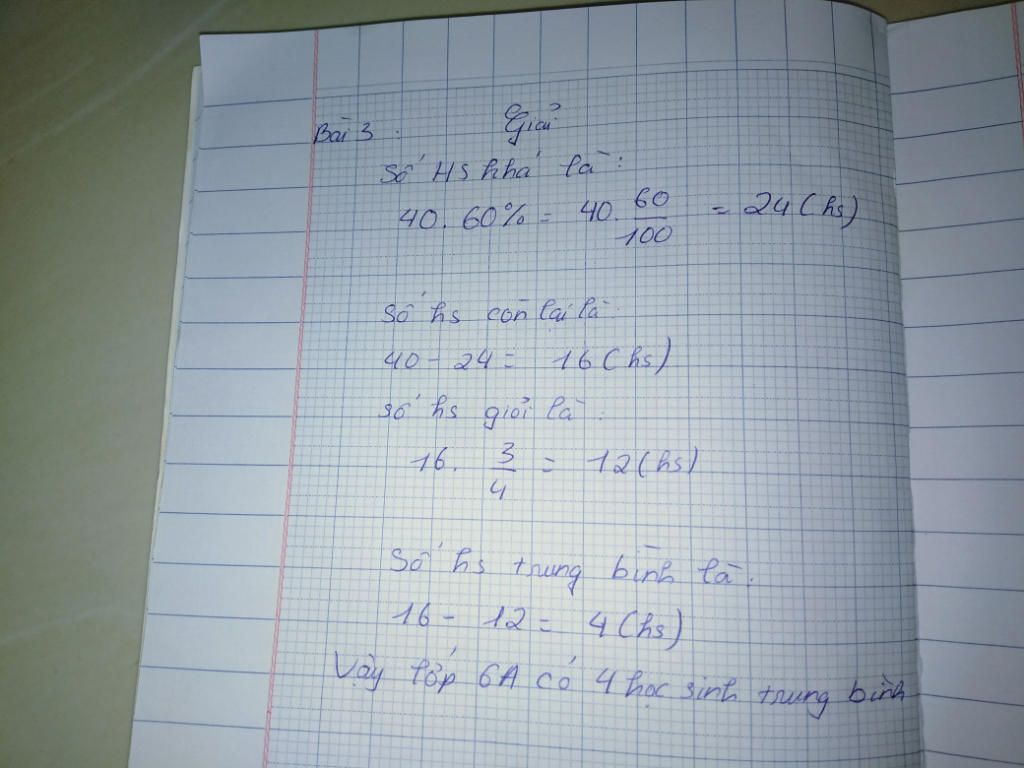 Bài 3: Giải
Số HS khá là:
40. 60% = 40. 60/100 = 24 (hs)
Số hs còn lại là:
40 - 24 = 16 (hs)
số hs giỏi là:
16. 3/4 = 12 (hs)
Số hs trung bình là:
16 - 12 = 4 (hs)
Vậy lớp 6A có 4 học sinh trung bình